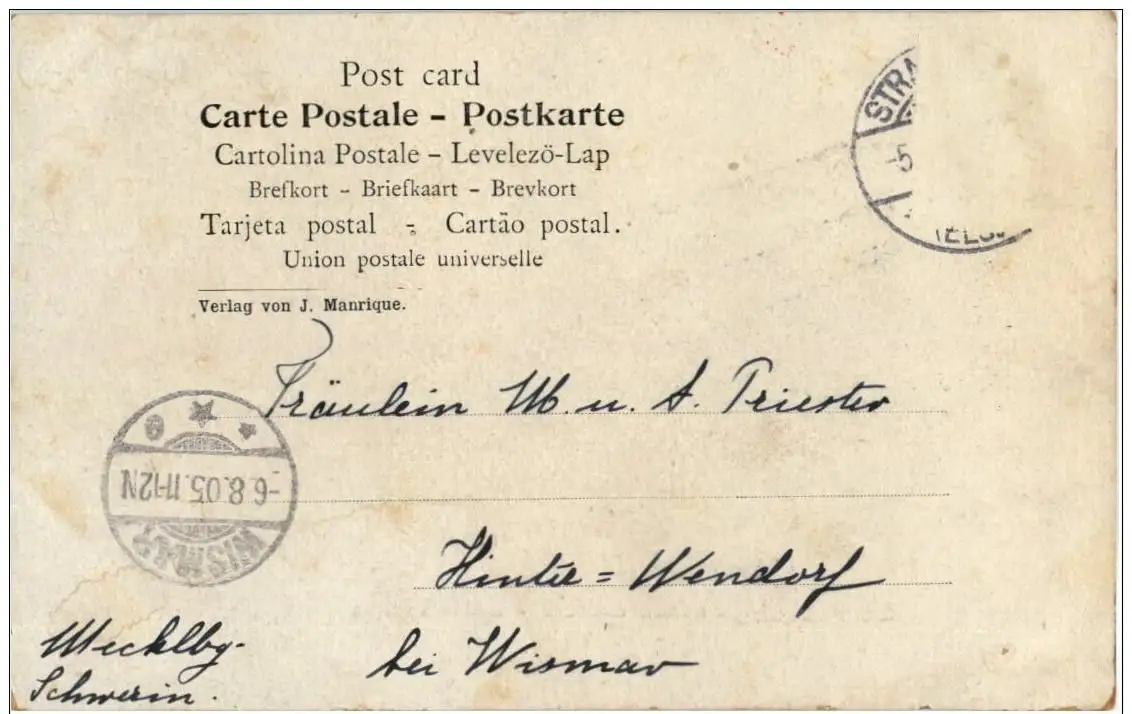 Post card
Carte Postale - Postkarte
Cartolina Postale - Levelezö-Lap
Brefkort - Briefkaart - Brevkort
Tarjeta postal - Cartão postal.
Union postale universelle
Verlag von J. Manrique.
STRA
-5
Fräulein M. u. A. Triester
WISMAR
-6.8.05.11-12N
Hinter=Wendorf
bei Wismar
Mecklbg-
Schwerin.